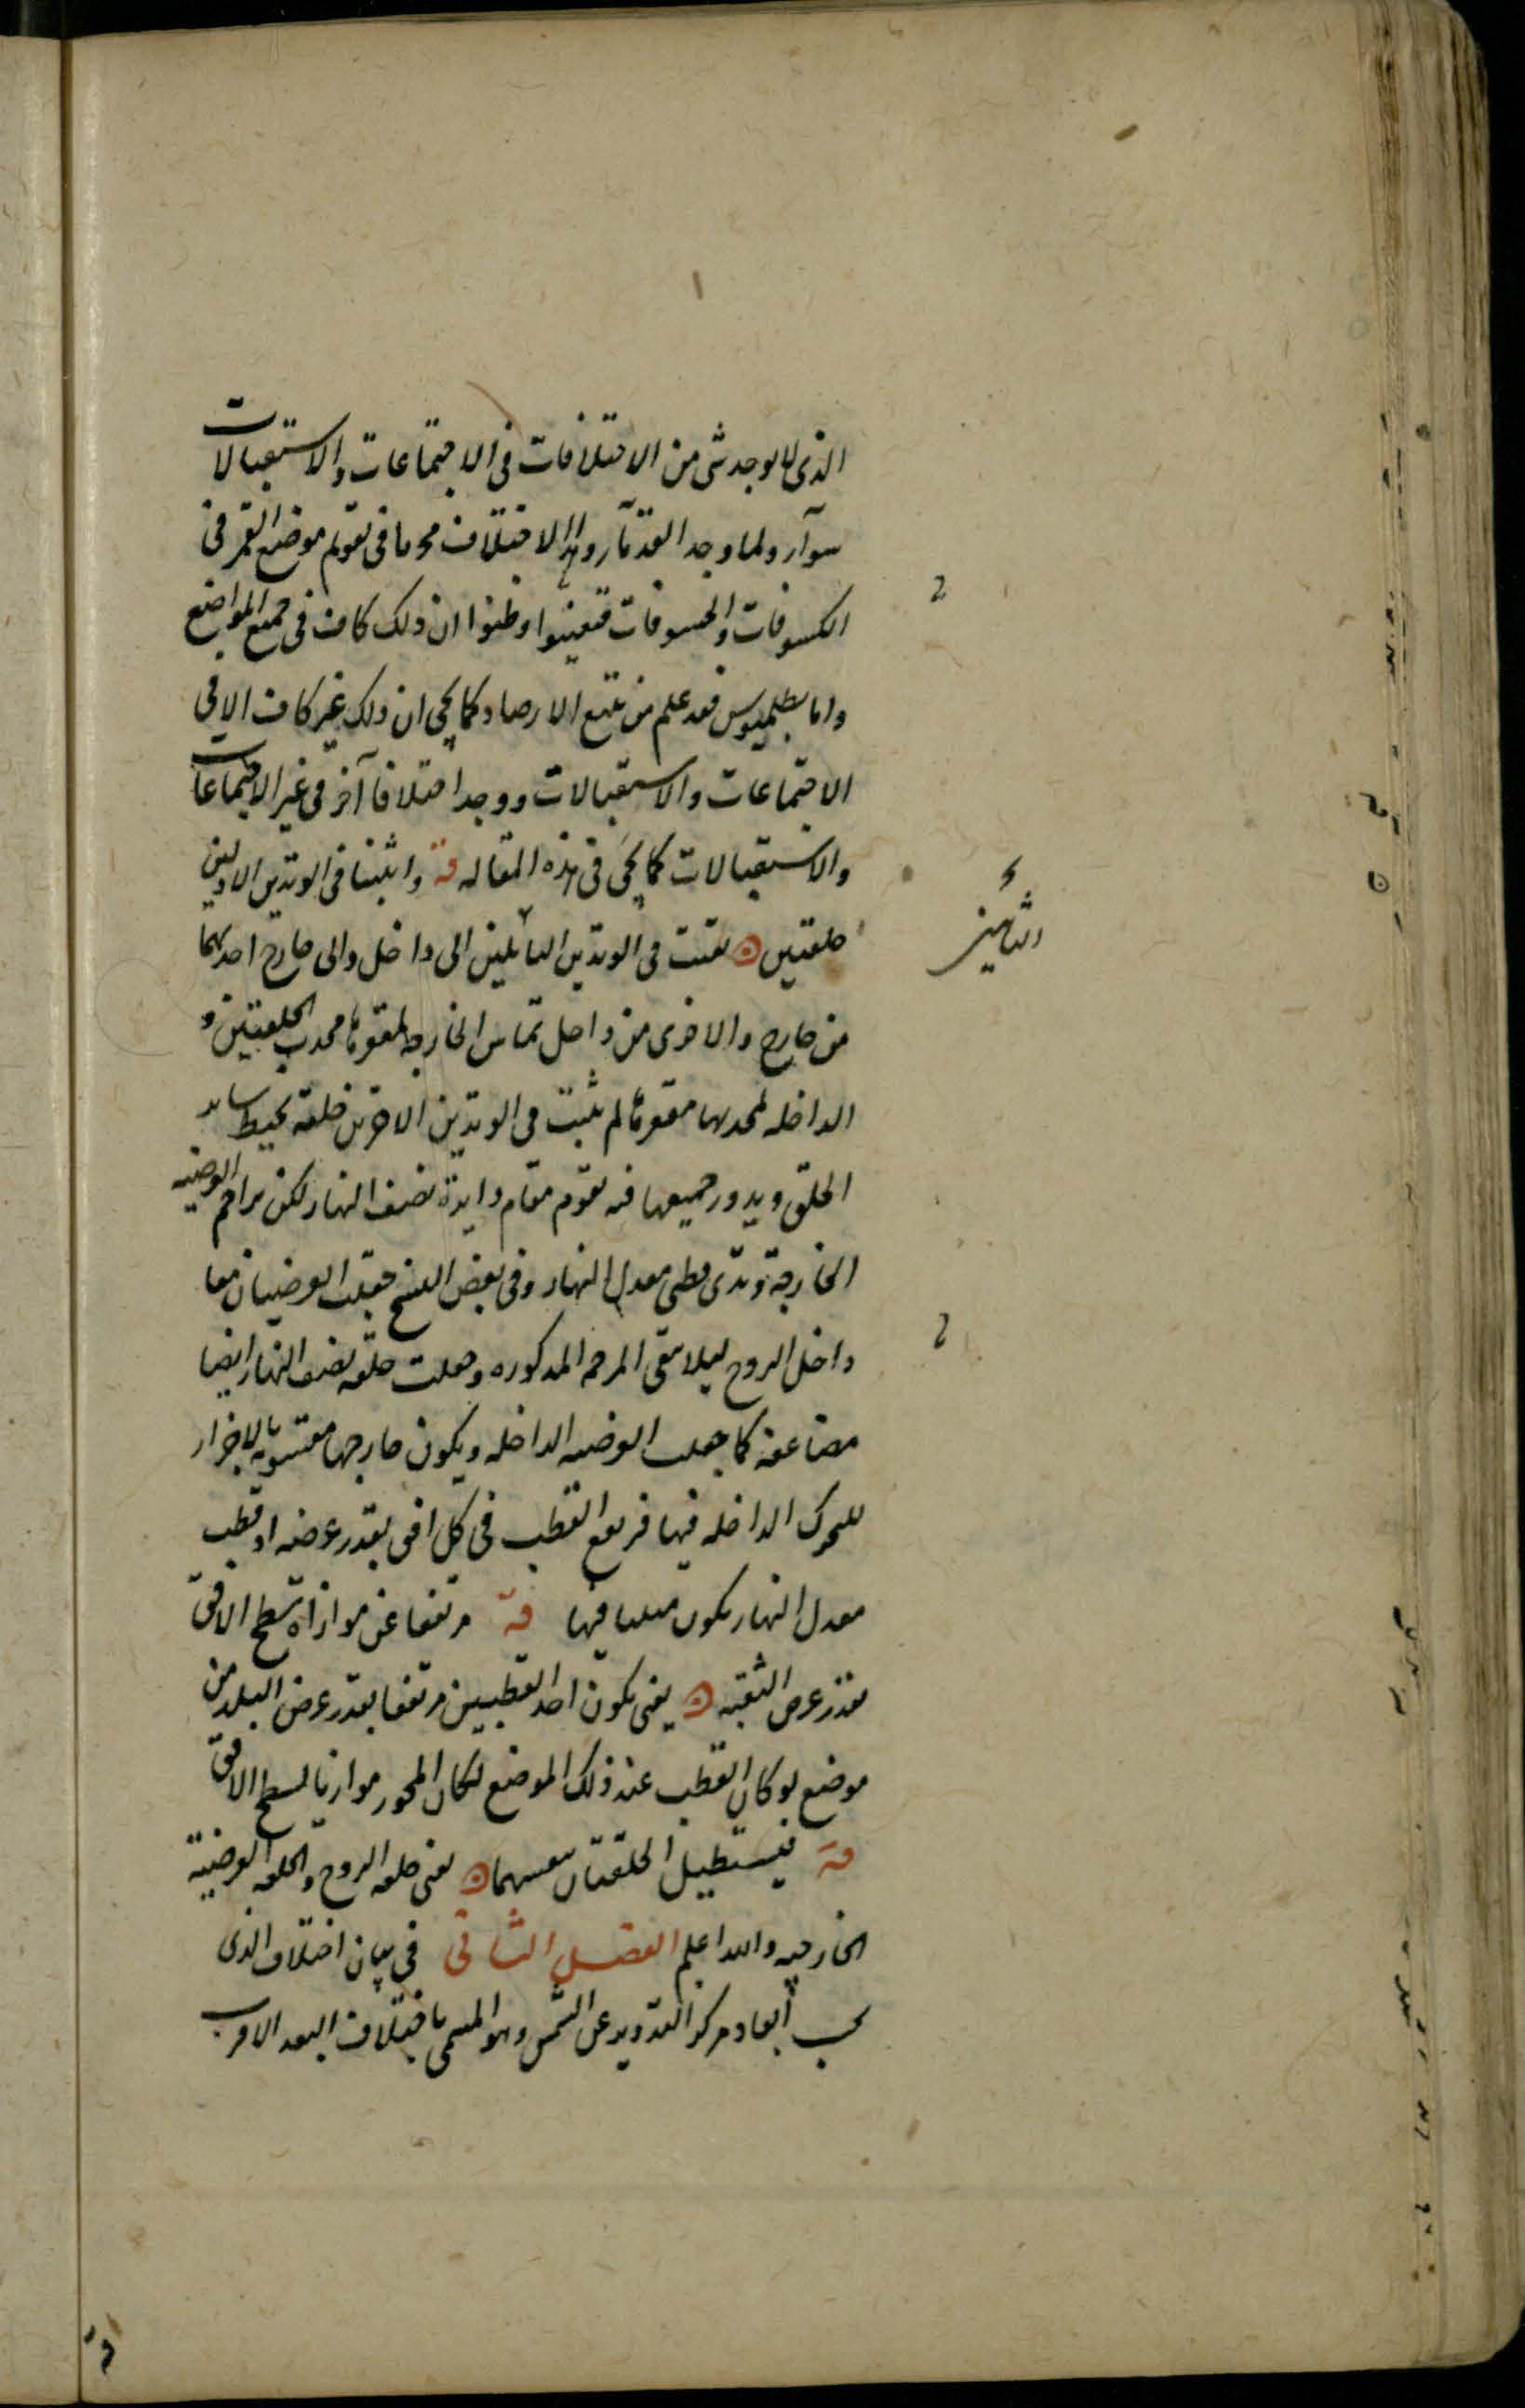 الذى لا يوجد شى من الاختلافات فى الاجتماعات والاستقبالات
سوآ، ولما وجد القدمآ، وهذا الاختلاف محرما فى تقويم موضع القمر فى
الكسوفات والخسوفات قنعوا وظنوا ان ذلك كاف فى جميع المواضع
واما بطلميوس فقد علم من تتبع الارصاد كما يجى ان ذلك غير كاف الا فى
الاجتماعات والاستقبالات ووجد اختلافا آخر فى غير الاجتماعات
والاستقبالات كما يجى فى هذه المقاله قه واثبتنا فى الوتدين الاولين
حلقتين ه تقنت فى الوتدين الماثلين الى داخل والى خارج احديهما
من خارج والاخرى من داخل تماس الخارجه بمقعرها محدب الحلقتين و
الداخله لمحدبها مقعرها ثم يثبت فى الوتدين الاخرين حلقه تحيط بساير
الحلق ويدور جميعها فيه تقوم مقام دايرة نصف النهار لكن يزاحم العرضيه
الخارجة وتدى قطبى معدل النهار وفى بعض النسخ جعلت العرضيتان معا
داخل البروج ليلا تبقى المزاحمه المذكوره وجعلت حلقه نصف النهار ايضا
مضاعفة كما جعلت العرضيه الداخله ويكون خارجها مقسوما بالاجزاء
لتتحرك الداخله فيها فيرتفع القطب فى كل افق بقدر عرضه اذ قطب
معدل النهار يكون مثبتا فيها قه مرتفعا عن موازاة سطح الافق
بقدر عرض البقعه ه يعنى يكون احد القطبين مرتفعا بقدر عرض البلد من
موضع لو كان القطب عند ذلك الموضع لكان المحور موازيا لسطح الافق
قه فيستطيل الحلقتان بعينهما ه يعنى حلقه البروج والحلقه العرضية
الخارجيه والله اعلم الفصل الثانى فى بيان اختلاف الذى
بحسب ابعاد مركز التدوير عن الشمس وهو المسمى باختلاف البعد الاقرب